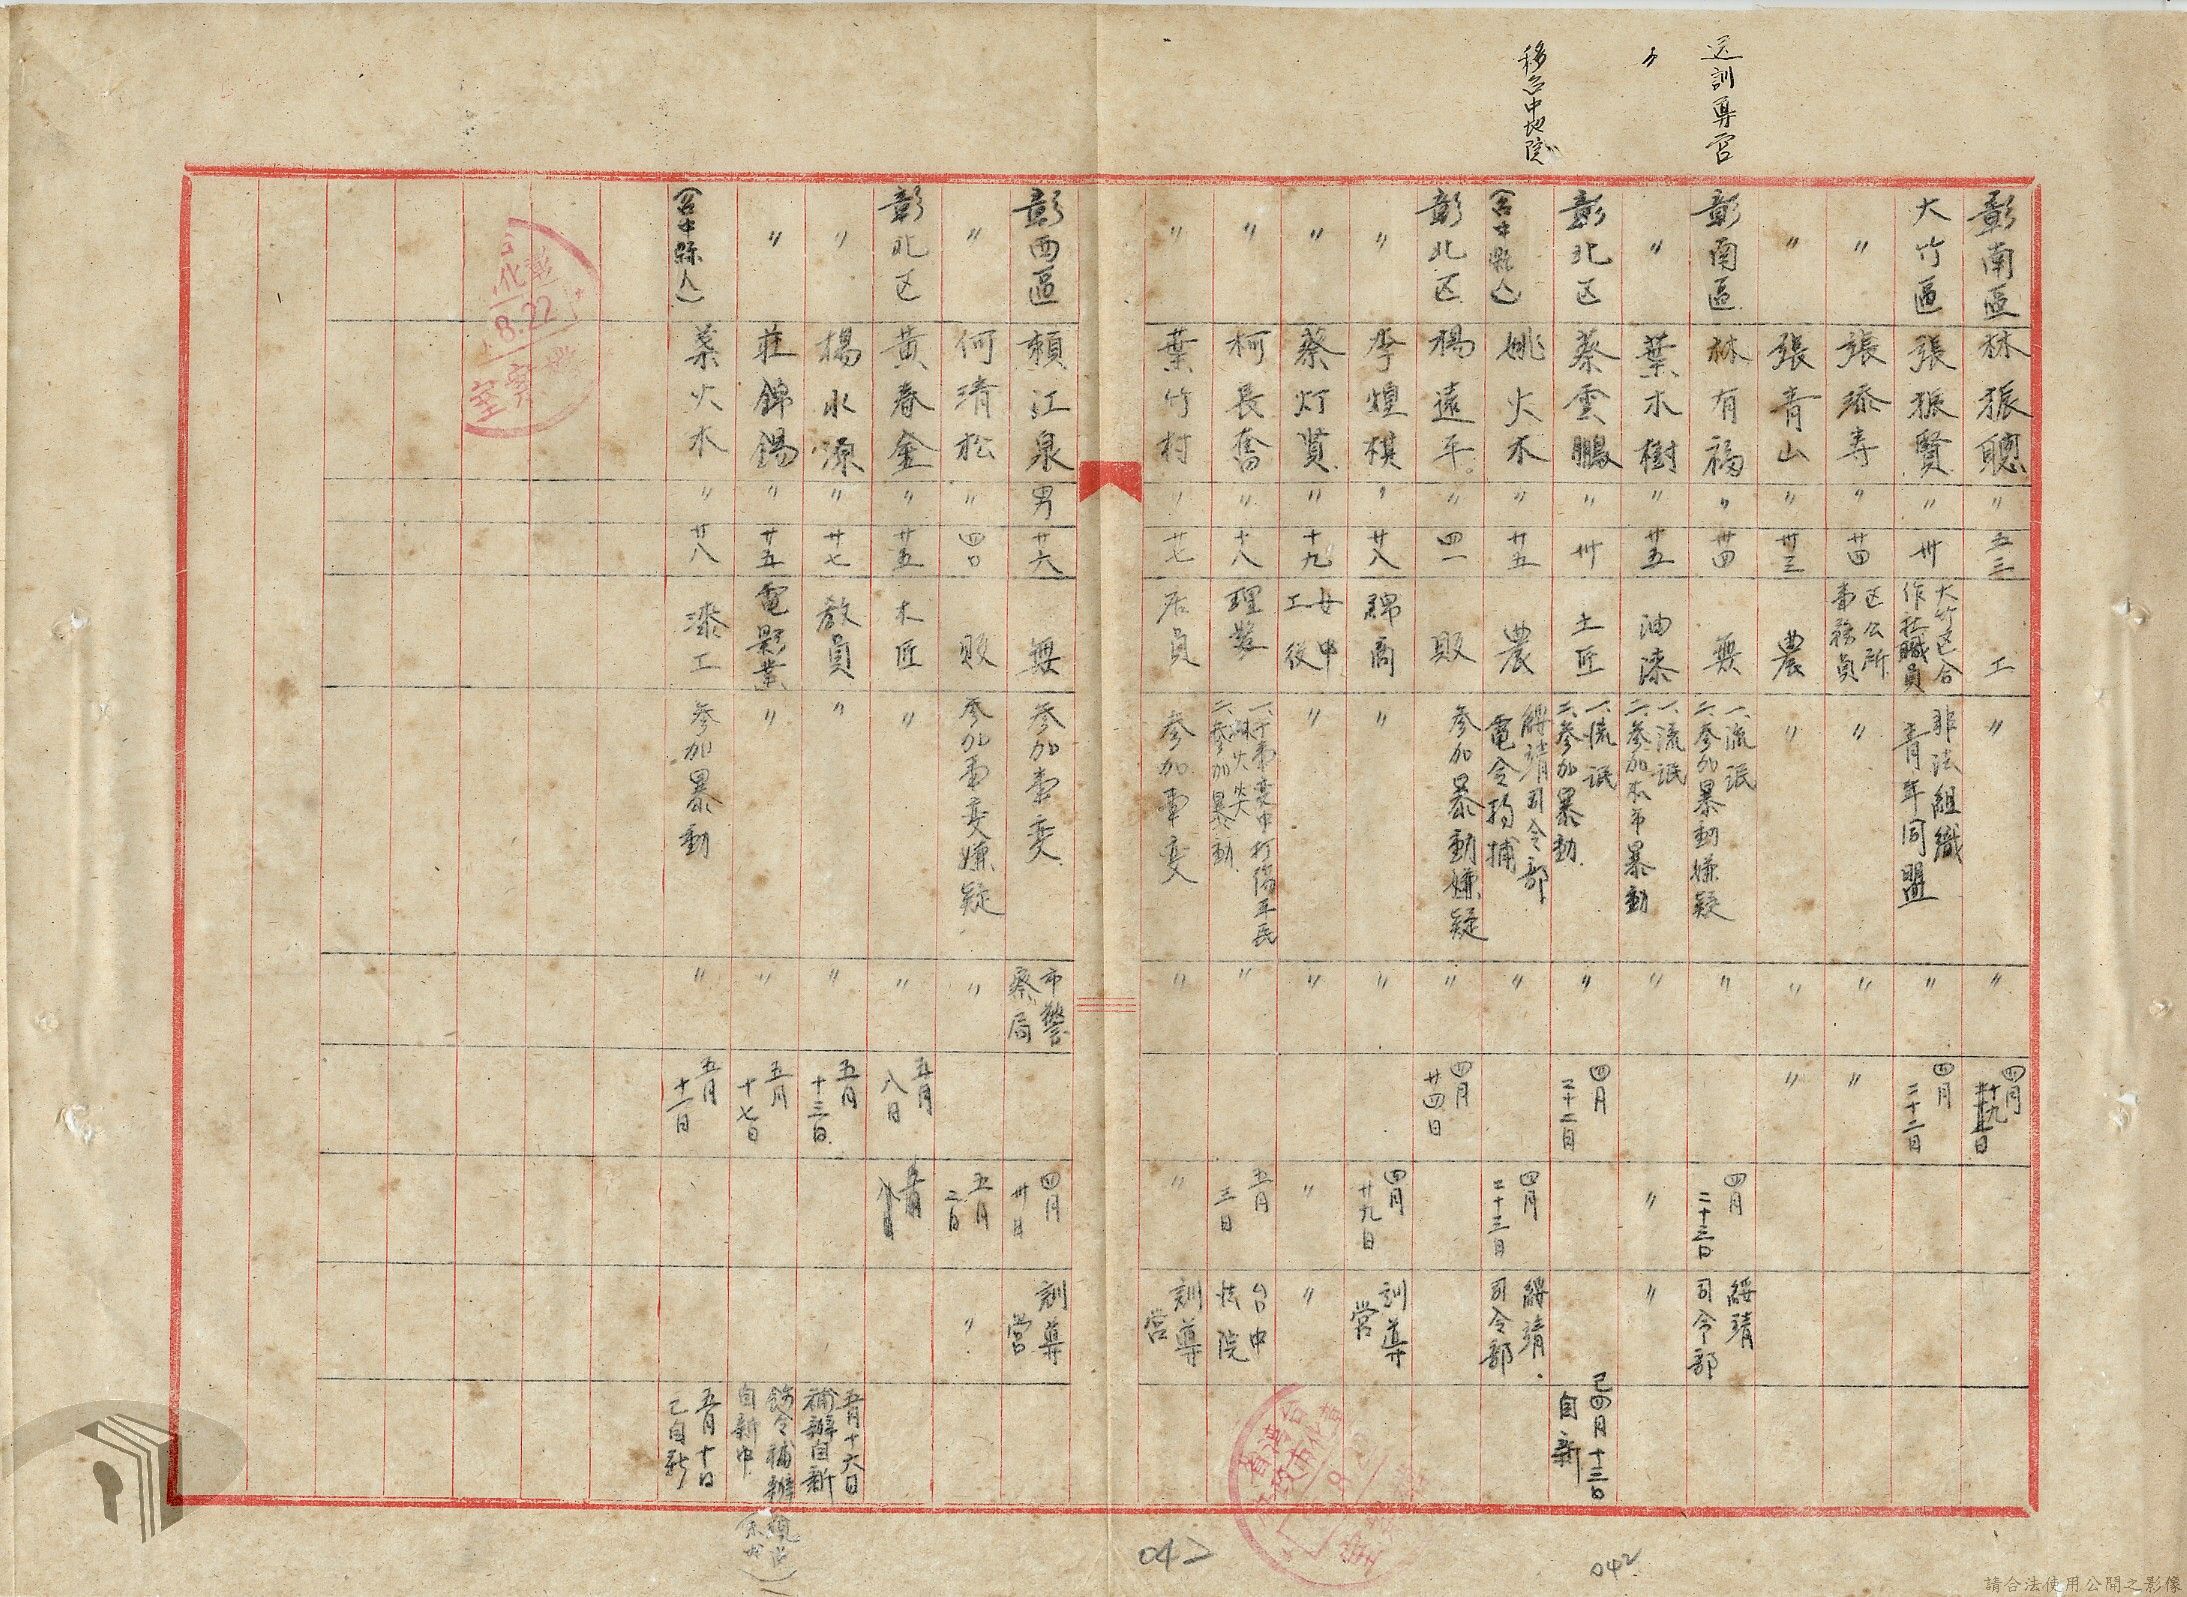 彰南區 林振聰 〃 五三 工 〃 〃 四月十九日
大竹區 張振賢 〃 卅 大竹区合作社職員 非法組織青年同盟 〃 四月二十二日
〃 張添壽 〃 廿四 区公所事務員 〃 〃 〃
〃 張青山 〃 卅三 農 〃 〃 〃
送訓導営
彰南區 林有福 〃 卅四 無 一、流氓 二、參加暴動嫌疑 〃 四月二十三日 綏靖司令部
〃
〃 葉木樹 〃 廿五 油漆 一、流氓 二、參加本市暴動 〃 〃 〃
彰北区 蔡雲鵬 〃 卅 土匠 一、流氓 二、參加暴動 〃 四月二十二日 已四月十三日自新
移台中地院
(台中縣人) 姚火木 〃 廿五 農 綏靖司令部電令拘捕 〃 四月二十三日 綏靖司令部
彰北区 楊遠平 〃 四一 販 參加暴動嫌疑 〃 四月廿四日
〃 李煌棋 〃 廿八 綿商 〃 〃 四月廿九日 訓導営
〃 蔡灯賢 〃 十九 女中工役 〃 〃 〃 〃
〃 柯長奮 〃 十八 理髮 一、于事变中打傷平民 二、參加暴動 〃 五月三日 台中法院
〃 葉竹村 〃 廿七 店員 參加事变 〃 〃 訓導営
彰西區 賴江泉 男 廿六 無 參加事变 市警察局 四月卅日 訓導営
〃 何清松 〃 四〇 販 參加事变嫌疑 〃 五月二日 〃
彰北区 黃春金 〃 廿五 木匠 〃 〃 五月八日
〃 楊水源 〃 廿七 教員 〃 〃 五月十三日 五月十六日補辦自新
〃 莊錦錫 〃 廿五 電影業 〃 〃 五月十七日 飭令補辦自新中
(台中縣人) 葉火木 〃 廿八 漆工 參加暴動 〃 五月十一日 五月十日已自新
彰化
8.22
042
042
請合法使用公開之影像